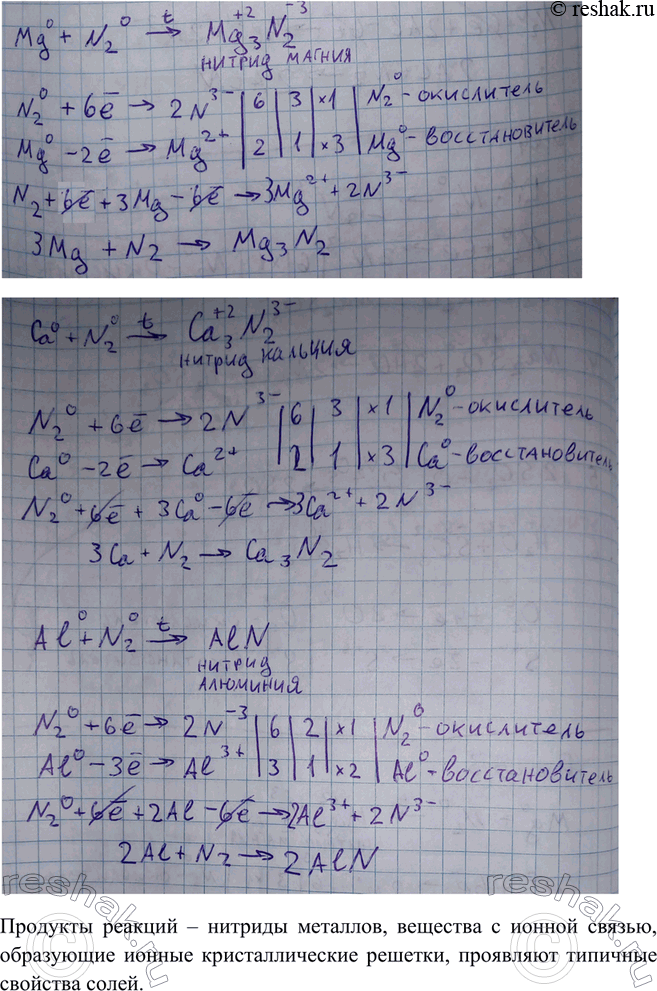 © reshak.ru
Mg⁰ + N₂⁰ →ᵗ Mg₃⁺²N₂⁻³
НИТРИД МАГНИЯ
N₂⁰ + 6ē → 2N³⁻ | 6 | 3 | ×1 | N₂⁰ - окислитель
Mg⁰ - 2ē → Mg²⁺ | 2 | 1 | ×3 | Mg⁰ - восстановитель
N₂ + 6ē + 3Mg - 6ē → 3Mg²⁺ + 2N³⁻
3Mg + N2 → Mg₃N₂
Ca⁰ + N₂⁰ →ᵗ Ca₃⁺²N₂³⁻
НИТРИД КАЛЬЦИЯ
N₂⁰ + 6ē → 2N³⁻ | 6 | 3 | ×1 | N₂⁰ - окислитель
Ca⁰ - 2ē → Ca²⁺ | 2 | 1 | ×3 | Ca⁰ - восстановитель
N₂⁰ + 6ē + 3Ca⁰ - 6ē → 3Ca²⁺ + 2N³⁻
3Ca + N₂ → Ca₃N₂
Al⁰ + N₂⁰ →ᵗ AlN
НИТРИД
АЛЮМИНИЯ
N₂⁰ + 6ē → 2N⁻³ | 6 | 2 | ×1 | N₂⁰ - окислитель
Al⁰ - 3ē → Al³⁺ | 3 | 1 | ×2 | Al⁰ - восстановитель
N₂⁰ + 6ē + 2Al - 6ē → 2Al³⁺ + 2N³⁻
2Al + N₂ → 2AlN
Продукты реакций – нитриды металлов, вещества с ионной связью,
образующие ионные кристаллические решетки, проявляют типичные
свойства солей.